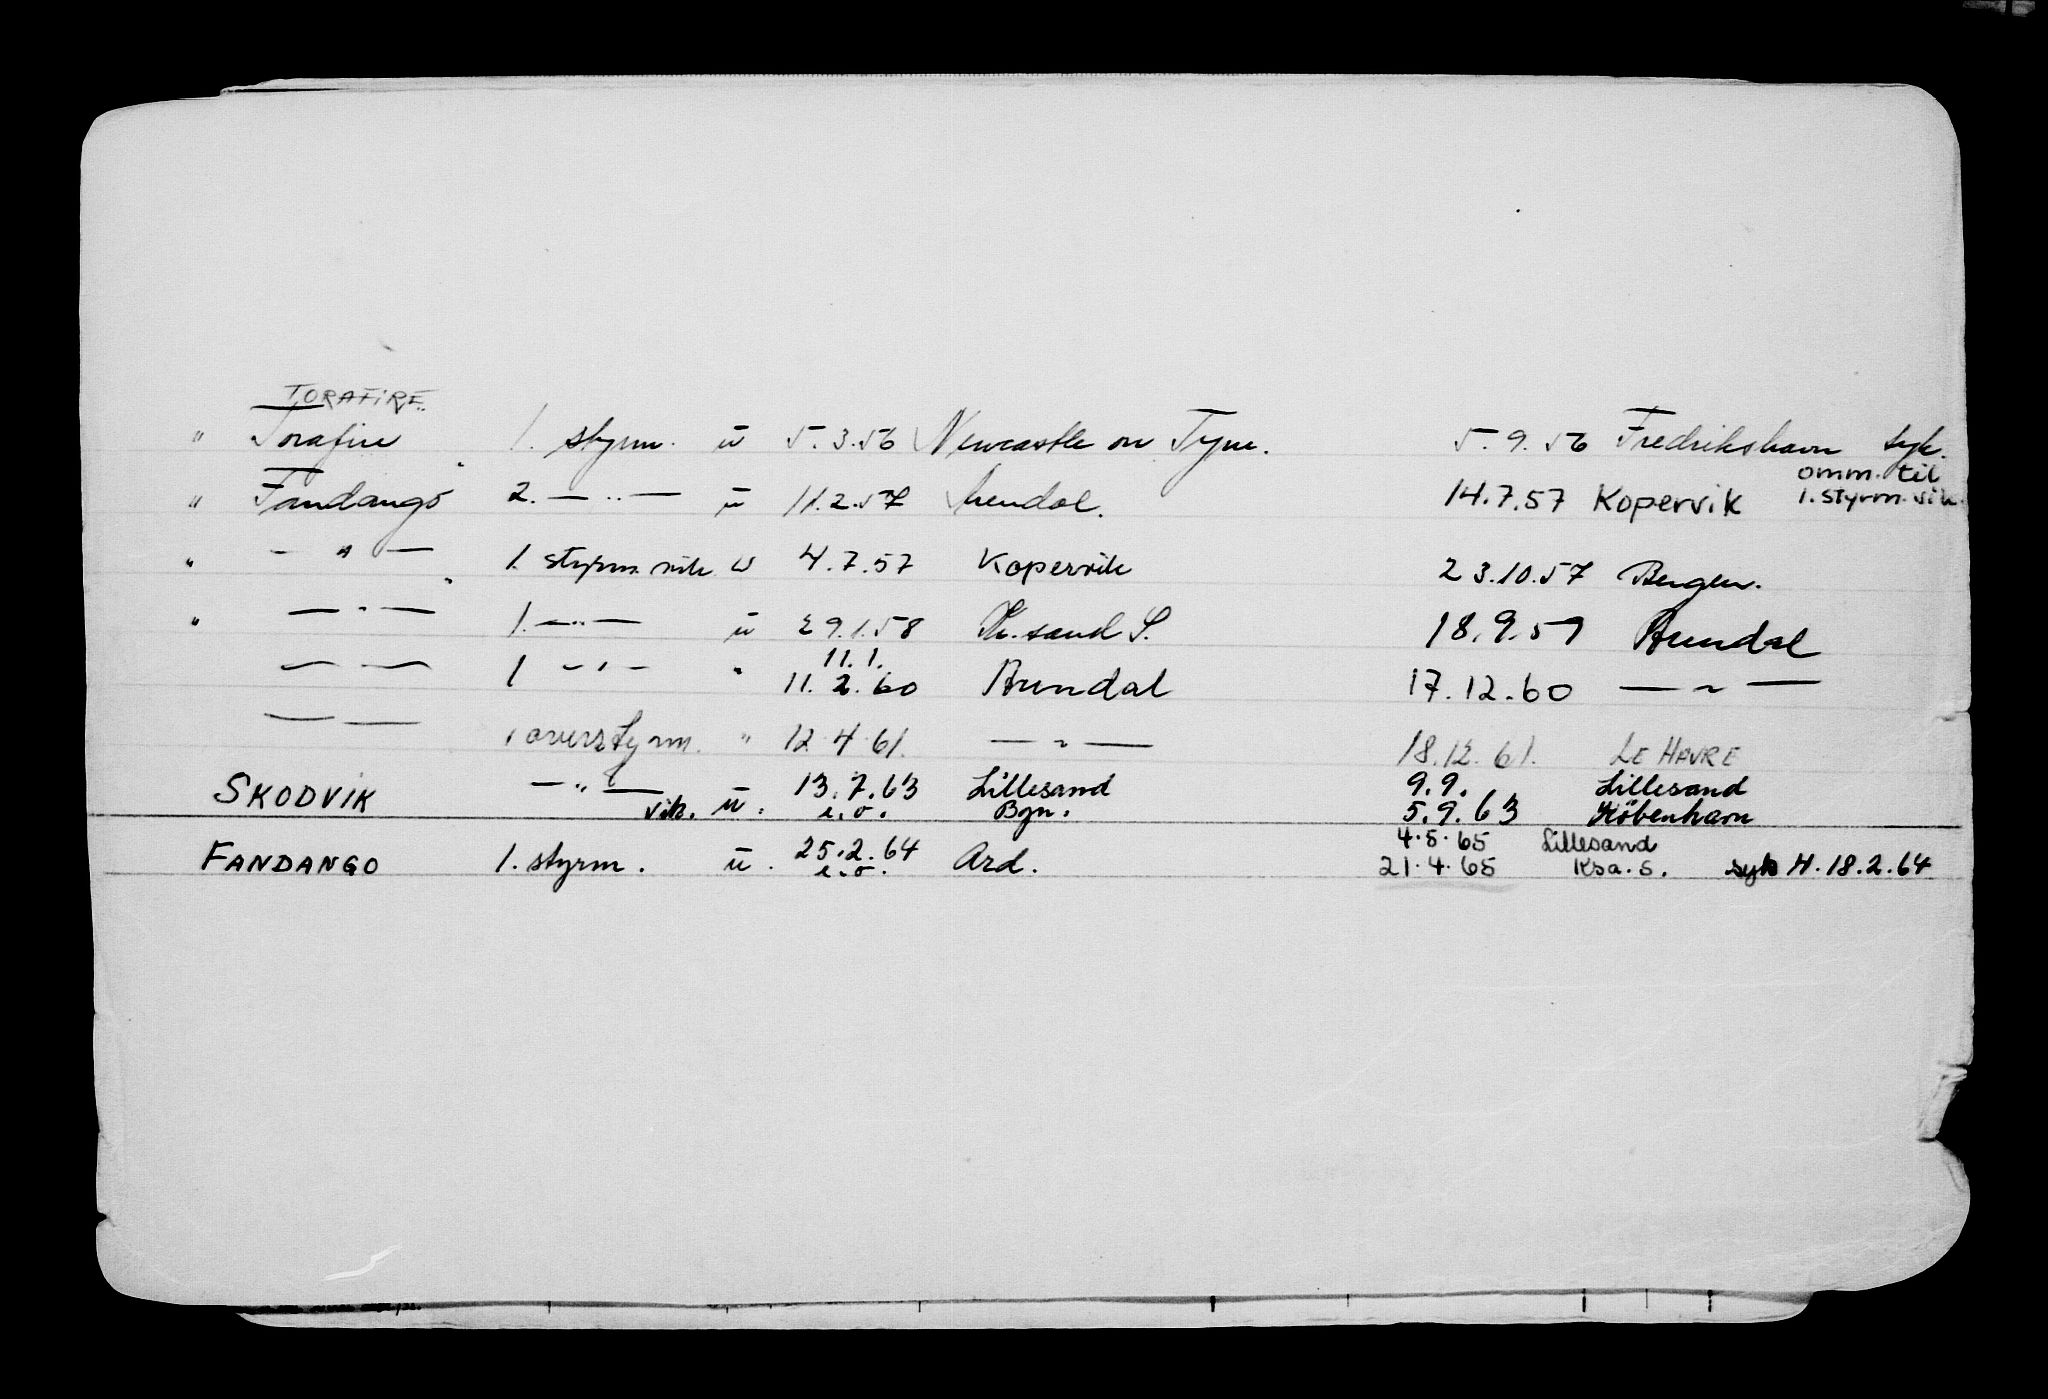 TORAFIRE
" Torafire 1. styrm. u 5.3.56 Newcastle on Tyne. 5.9.56 Fredrikshavn syk.
omm. til
" Fandango 2. — " — u 11.2.57 Arendal. 14.7.57 Kopervik 1. styrm. vik.
" — " — 1. styrm. vik. u 4.7.57 Kopervik 23.10.57 Bergen.
" — " — 1. — " — u 29.1.58 Kr.sand S. 18.9.59 Arendal
11.1.
— — 1 — " — " 11.2.60 Arendal 17.12.60 — " —
— — overstyrm. " 12.4.61. — " — 18.12.61. LE HAVRE
SKODVIK — " — vik. u. 13.7.63 Lillesand 9.9. Lillesand
e.o. Bgn. 5.9.63 Köbenhavn
4.5.65 Lillesand
FANDANGO 1. styrm. u. 25.2.64 Ard. 21.4.65 Ksa.S. syk H.18.2.64
e.o.